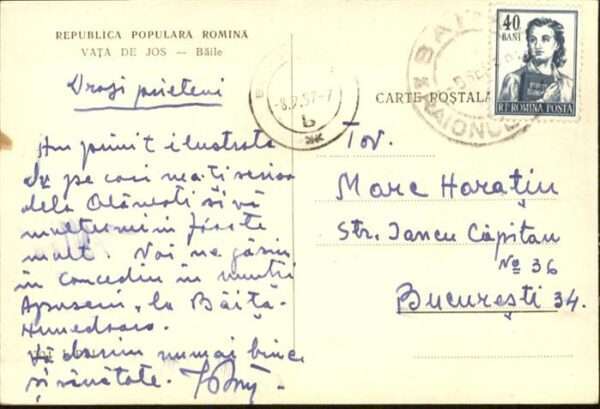 REPUBLICA POPULARA ROMINĂ
VAȚA DE JOS — Băile
Dragi prieteni
Am primit ilustrata
pe care mi-ați
dela Olănești și vă
mulțumim foarte
mult. Noi ne găsim
în concediu în munții
Apuseni, la Băița-
Hunedoara.
Vă dorim numai bine
și sănătate.
40
BANI
R.P. ROMINA POSTA
CARTE POȘTALĂ
-8.9.57-7
RAIONUL
Tov.
Marc Horațiu
Str. Iancu Căpitan
No 36
București 34.